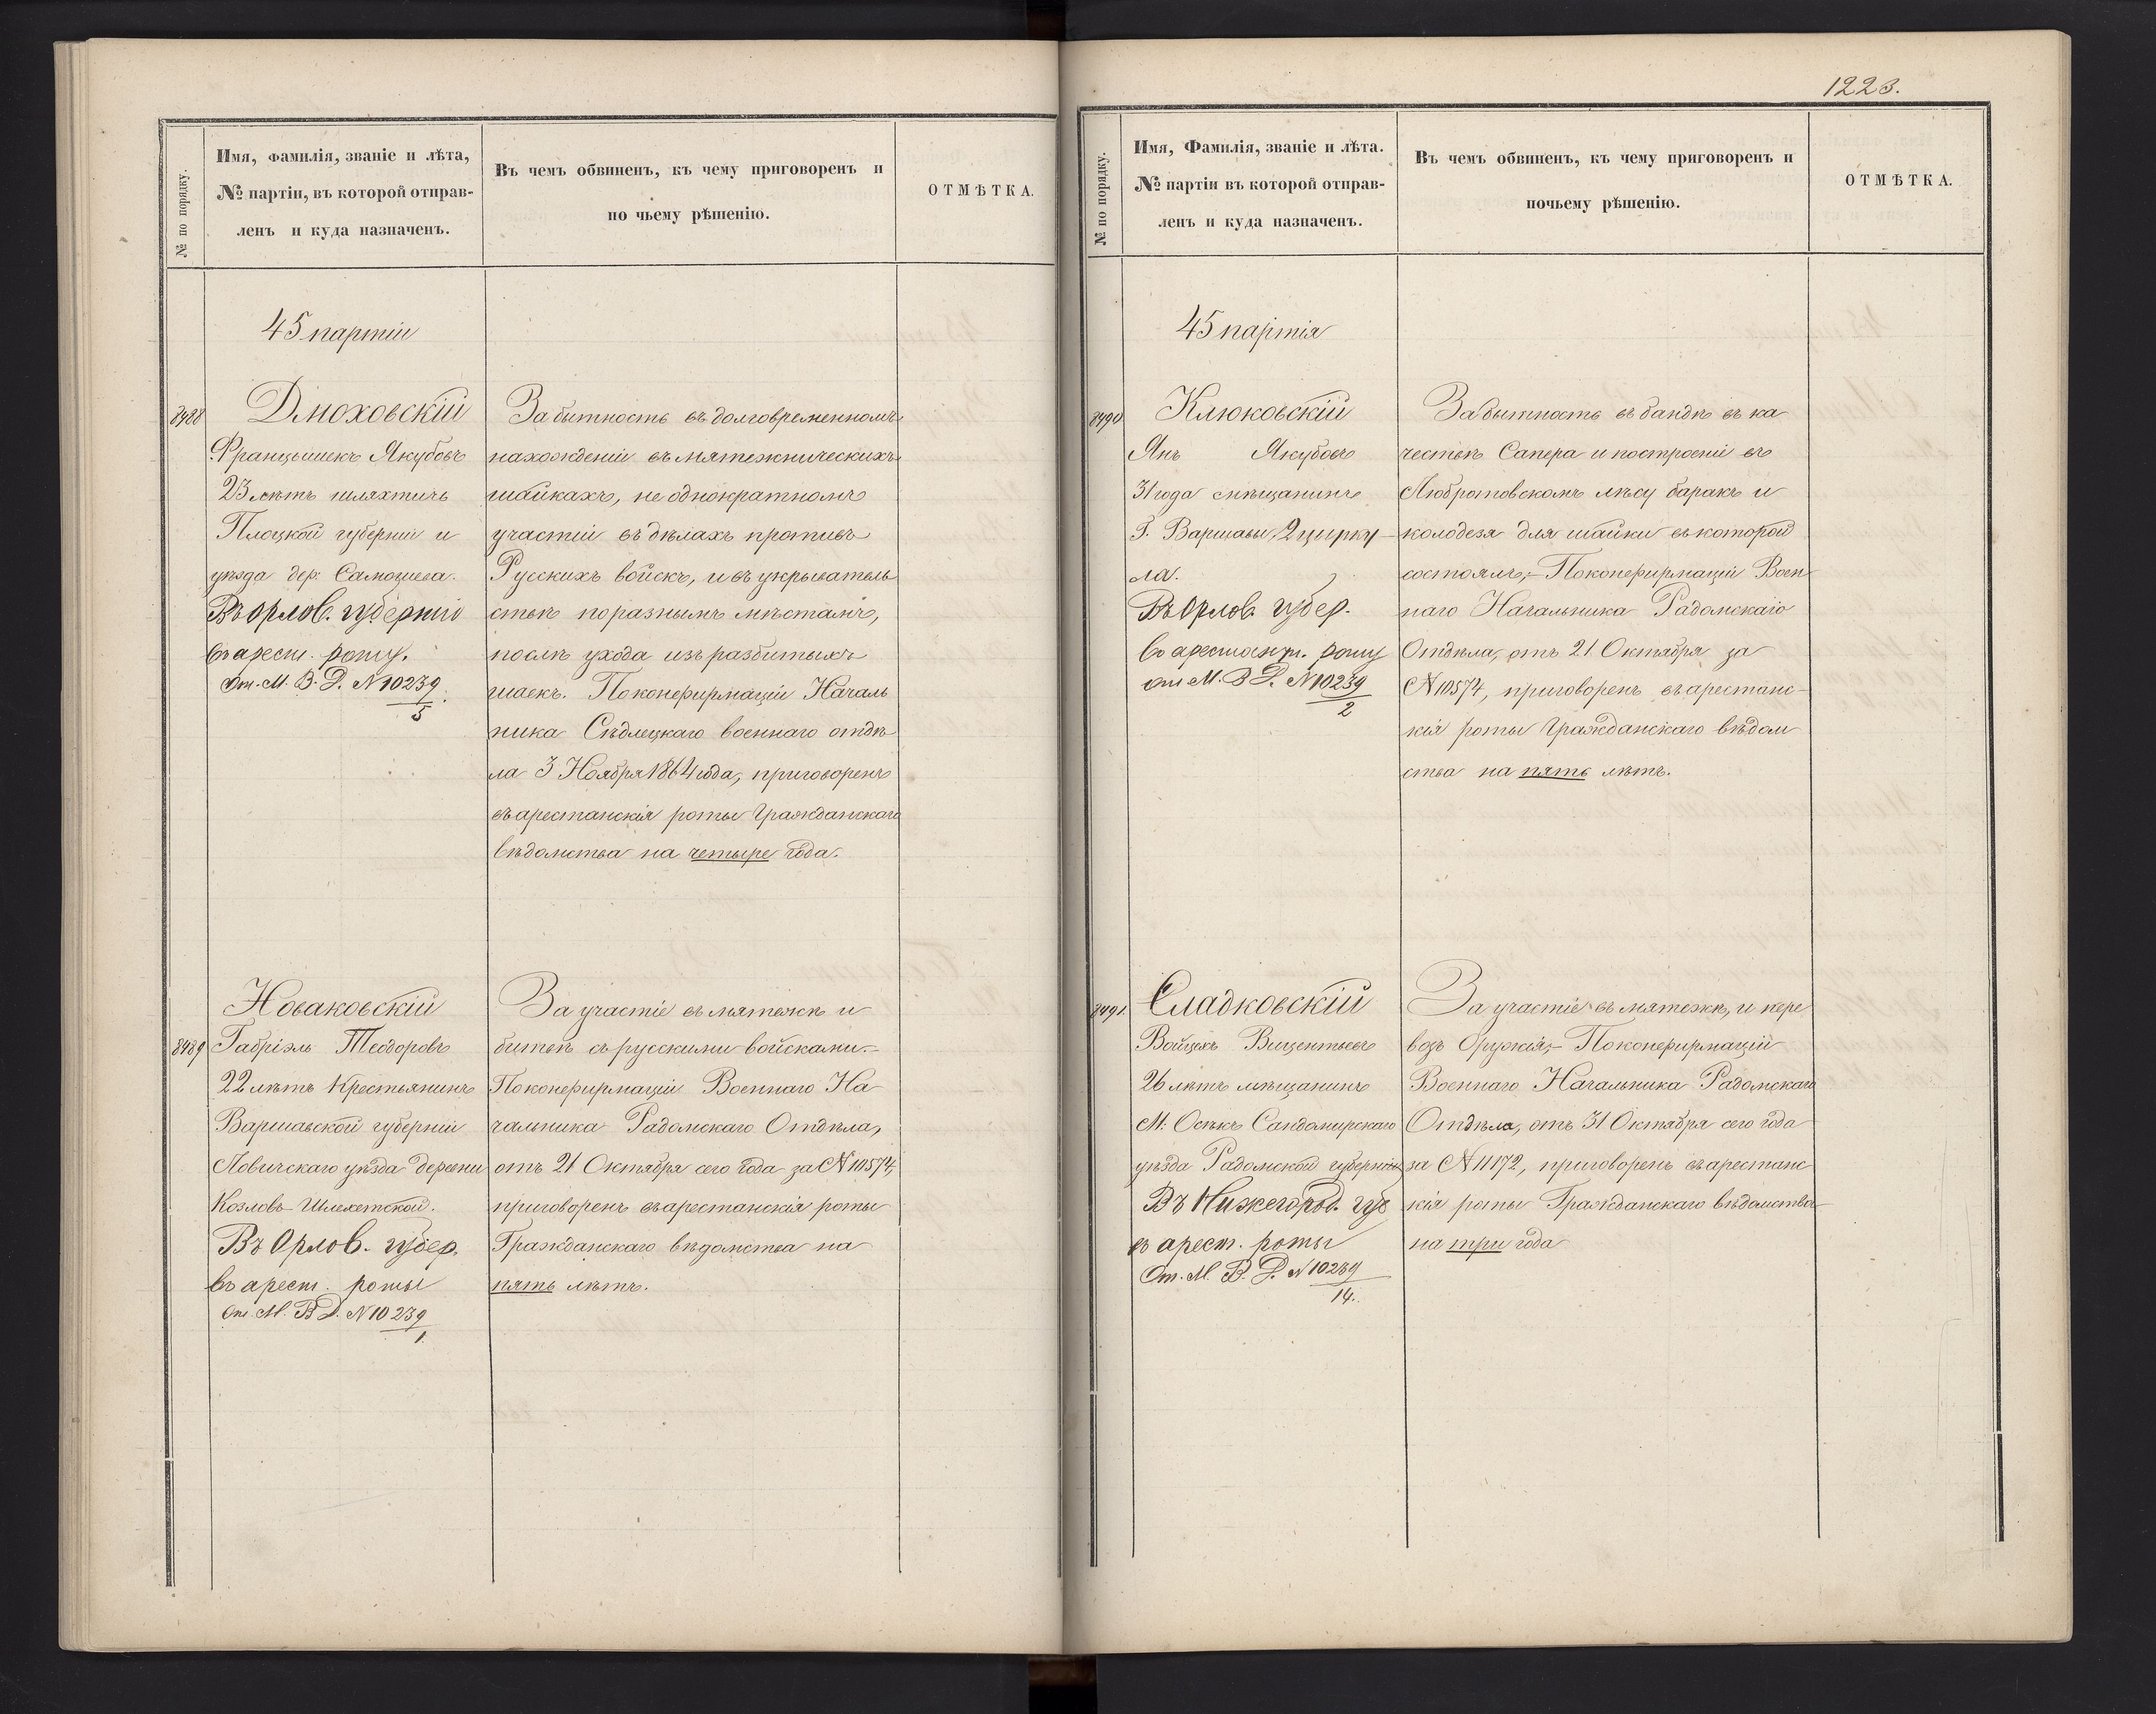 № по порядку.
Имя, Фамилія, званіе и лѣта,
№ партіи, въ которой отправ-
ленъ и куда назначенъ.
Въ чемъ обвиненъ, къ чему приговоренъ и
по чьему рѣшенію.
ОТМѢТКА.
45 партіи
8488
Дмоховскій
Францышекъ Якубовъ
23 лѣтъ шляхтичъ
Плоцкой губерніи и
уѣзда дер.
Въ Орлов. губернію
въ арест. роту.
От. М. В. Д. N 10239
5
За бытность въ долговременномъ
нахожденіи въ мятежническихъ
шайкахъ, не однократномъ
участіи въ дѣлахъ противъ
Русскихъ войскъ, и въ укрыватель
ствѣ по разнымъ мѣстамъ,
послѣ ухода изъ разбитыхъ
шаекъ. По конфирмаціи Началь
ника Сѣдлецкаго военнаго отдѣ
ла 3 Ноября 1864 года, приговоренъ
въ арестанскія роты Гражданскаго
вѣдомства на четыре года.
8489
Новаковскій
Габріэль Теодоровъ
22 лѣтъ Крестьянинъ
Варшавской губерніи
Ловичскаго уѣзда деревни
Козловъ-Шляхетской.
Въ Орлов. губер.
въ арест. роты
От. М. В. Д. N 10239
1.
За участіе въ мятежѣ и
битвѣ съ русскими войсками.-
По конфирмаціи Военнаго На
чальника Радомскаго Отдѣла,
отъ 21 Октября сего года за N 10574,
приговоренъ въ арестанскія роты
Гражданскаго вѣдомства на
пять лѣтъ.
1223.
№ по порядку.
Имя, Фамилія, званіе и лѣта.
№ партіи въ которой отправ-
ленъ и куда назначенъ.
Въ чемъ обвиненъ, къ чему приговоренъ и
почьему рѣшенію.
ОТМѢТКА.
45 партія
8490
Клюковскій
Янъ Якубовъ
31 года мѣщанинъ
Г. Варшавы, 2 цирку-
ла.
Въ Орлов. губер.
въ арестант. роту
от М. В. Д. N 10239
2
За бытность въ бандѣ въ ка
чествѣ Сапера и построеніи въ
лѣсу баракъ и
колодезя для шайки въ которой
состоялъ;- По конфирмаціи Воен
наго Начальника Радомскаго
Отдѣла, отъ 21 Октября за
N 10574, приговоренъ въ арестанс-
кія роты Гражданскаго вѣдом
ства на пять лѣтъ.
8491.
Сладковскій
Войцехъ Вицентьевъ
26 лѣтъ мѣщанинъ
М. Осѣкъ Сандомирскаго
уѣзда Радомской губерніи
Въ Нижегород. губ
въ арест. роты
От. М. В. Д. N 10239
14.
За участіе въ мятежѣ, и пере
возъ Оружія;- По конфирмаціи
Военнаго Начальника Радомскаго
Отдѣла, отъ 31 Октября сего года
за N 11172, приговоренъ въ арестанс
кія роты Гражданскаго вѣдомства
на три года